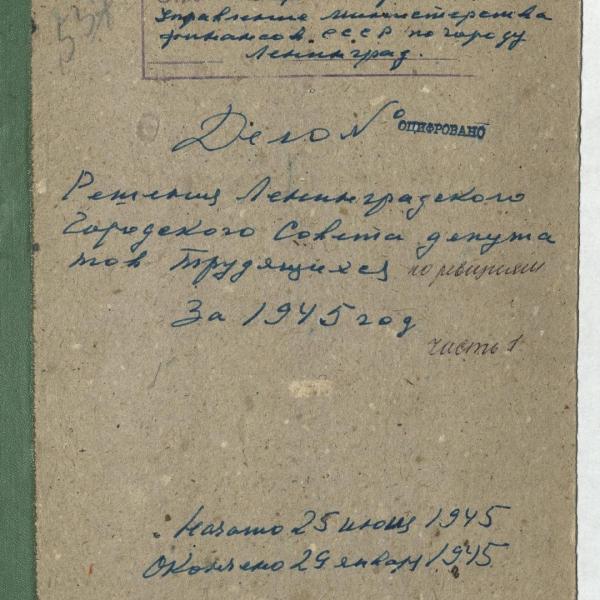 534
Управление министерства
финансов СССР по городу
Ленинград.
Дело №
ОЦИФРОВАНО
Решения Ленинградского
Городского Совета депута
тов трудящихся по ревизиям
За 1945 год
часть 1
Начато 25 июня 1945
Окончено 29 январ 1945